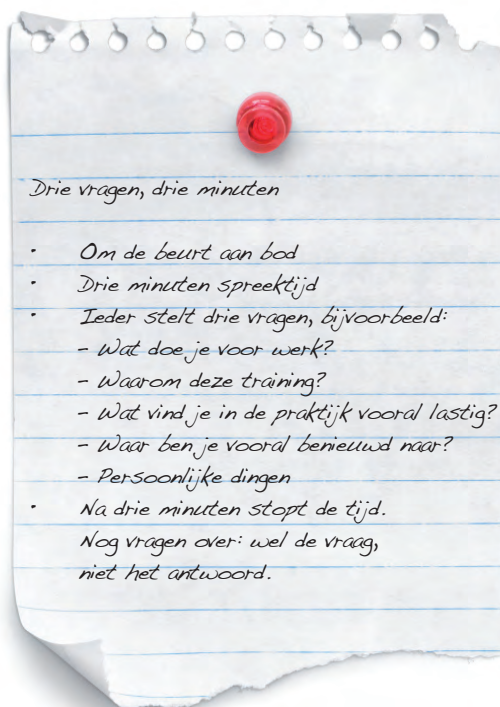 Drie vragen, drie minuten
• Om de beurt aan bod
• Drie minuten spreektijd
• Ieder stelt drie vragen, bijvoorbeeld:
– Wat doe je voor werk?
– Waarom deze training?
– Wat vind je in de praktijk vooral lastig?
– Waar ben je vooral benieuwd naar?
– Persoonlijke dingen
• Na drie minuten stopt de tijd.
Nog vragen over: wel de vraag,
niet het antwoord.